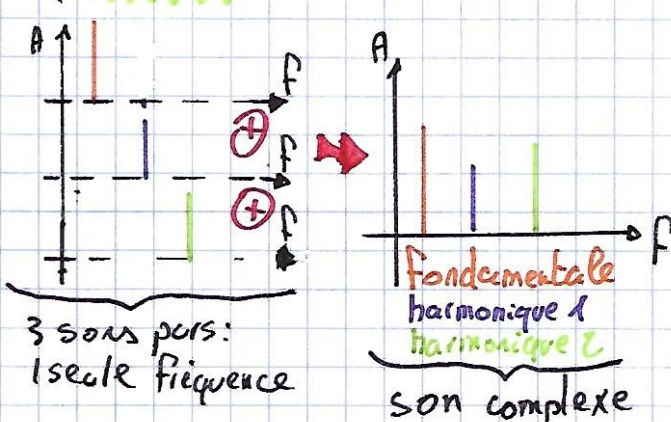 A
f
+
f
+
f
3 sons purs:
1 seule fréquence
A
f
Fondamentale
harmonique 1
harmonique 2
son complexe